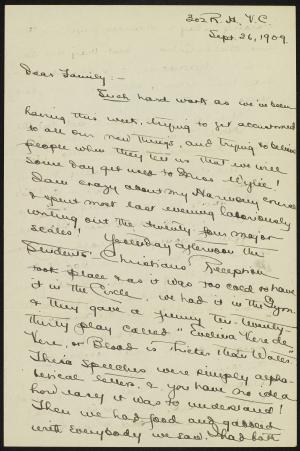 302 R. H., V. C.
Sept. 26, 1909.
Dear Family:-
Such hard work as we've been
having this week, trying to get accustomed
to all our new things, and trying to believe
people when they tell us that we will
some day get used to Miss Wylie!
I am crazy about my Harmony course
& spent most last evening laboriously
writing out the twenty four major
scales! Yesterday afternoon the
Students' Christians' Reception
took place & as it was too cold to have
it in the Circle, we had it in the Gym.
& they gave a funny ten-twenty-
thirty play called "Evelina Verede
Vere, or Blood is Thicker Than Water."
Their speeches were simply alpha-
betical letters, & you have no idea
how easy it was to understand!
Then we had food and gabbed
with everybody we saw. Had both